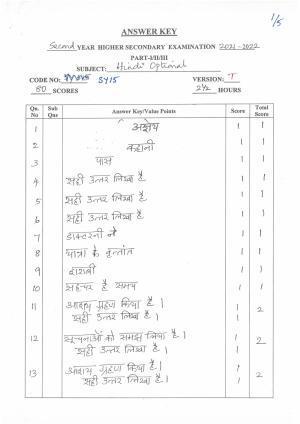 1/5
ANSWER KEY
Second YEAR HIGHER SECONDARY EXAMINATION 2021-2022
PART-I/II/III
SUBJECT: Hindi Optional
CODE NO: SY15 VERSION: T
80 SCORES 2½ HOURS
Qn. No Sub Qns Answer Key/Value Points Score Total Score
1 अज्ञेय 1 1
2 कहानी 1 1
3 पास 1 1
4 सही उत्तर लिखा है 1 1
5 सही उत्तर लिखा है 1 1
6 सही उत्तर लिखा है 1 1
7 डाक्टरनी ने 1 1
8 यात्रा के वृत्तांत 1 1
9 शराबी 1 1
10 सहचर है समय 1 1
11 आशय ग्रहण किया है। 1 2
सही उत्तर लिखा है। 1
12 सूचनाओं को समझ लिया है। 1 2
सही उत्तर लिखा है। 1
13 आशय ग्रहण किया है। 1 2
सही उत्तर लिखा है। 1